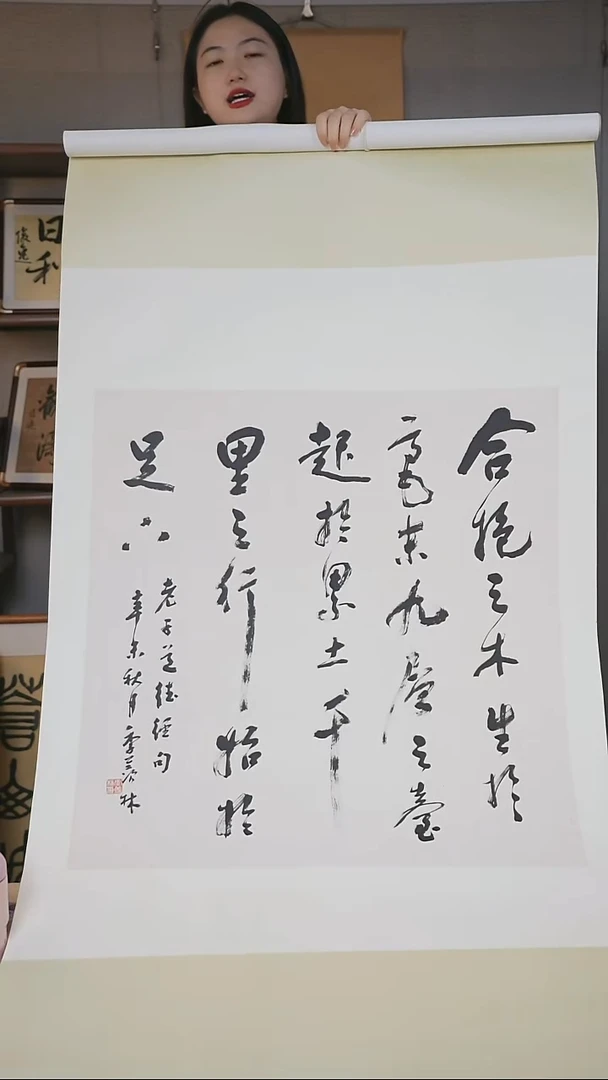 合抱之木生於
毫末九層之臺
起於累土千
里之行始於
足下
老子道德經句
辛未秋月季羨林
日利